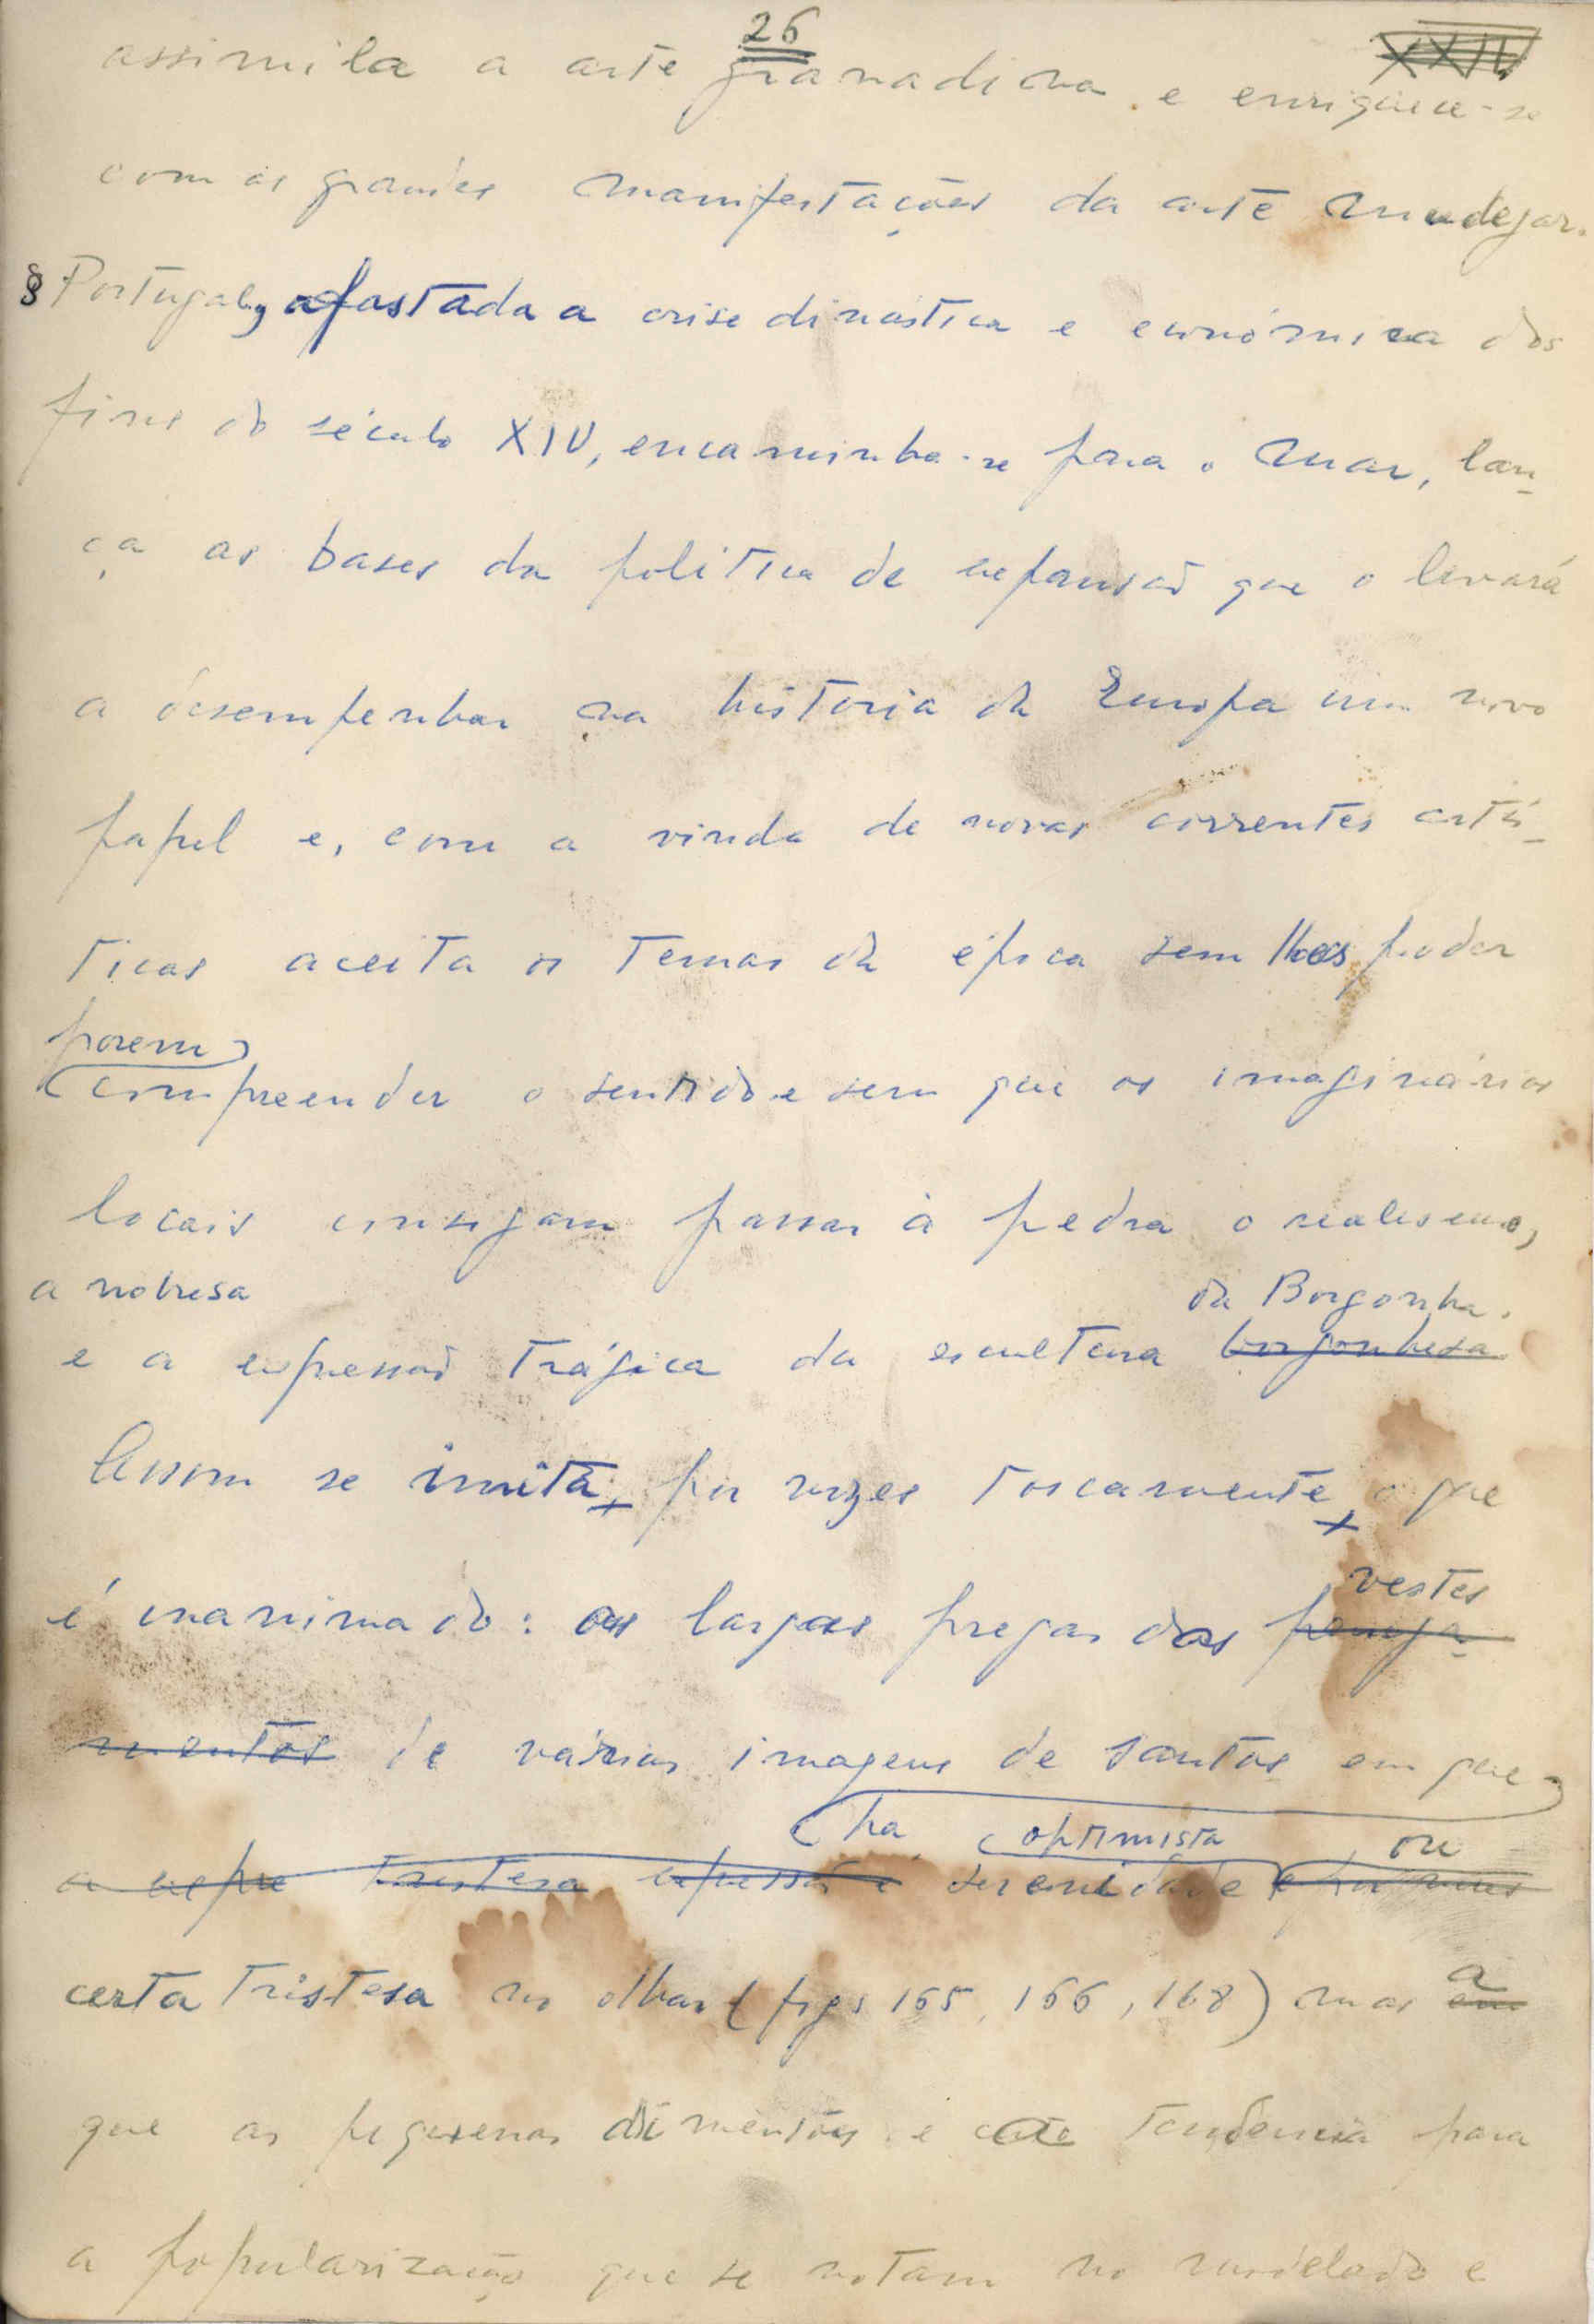 26
XXIV
assimila a arte granadina e enriquece-se
com as grandes manifestações da arte mudejar.
§ Portugal, afastada a crise dinástica e económica dos
fins do século XIV, encaminha-se para o mar, lan-
ça as bases da política de expansão que o levará
a desempenhar na história da Europa um novo
papel e, com a vinda de novas correntes artís-
ticas aceita os temas da época sem lhes poder
porem
compreender o sentido e sem que os imaginários
locais consigam passar à pedra o realismo,
a nobresa
da Borgonha.
e a expressão trágica da escultura borgonhesa
Assim se imita, por vezes toscamente, o que
é inanimado: as largas pregas das
vestes
paneja-
mentos de várias imagens de santos em que
ha optimista ou
a expre tristesa expressão e serenidade e por vezes
certa tristesa no olhar (figs 165, 166, 168) mas
a
em
que as pequenas dimensões e certa tendencia para
a popularização que se notam no modelado e